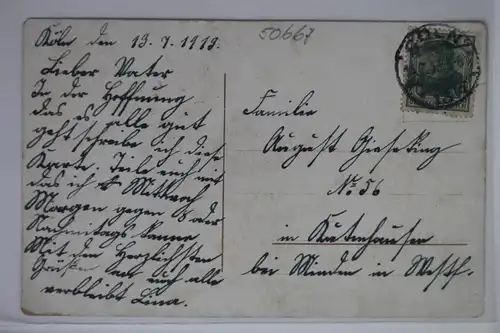 Köln den 13.7.1913.
50667
Lieber Vater
In der Hoffnung
das es alle gut
geht schreibe ich diese
Karte. Teile euch mit
das ich Mittwoch
Morgen gegen 8 oder
Nachmittags komme
Mit den Herzlichsten
Grüßen an euch alle
verbleibt Lina.
Familie
August Gieseking
No. 56
in Kutenhausen
bei Minden in Westf.